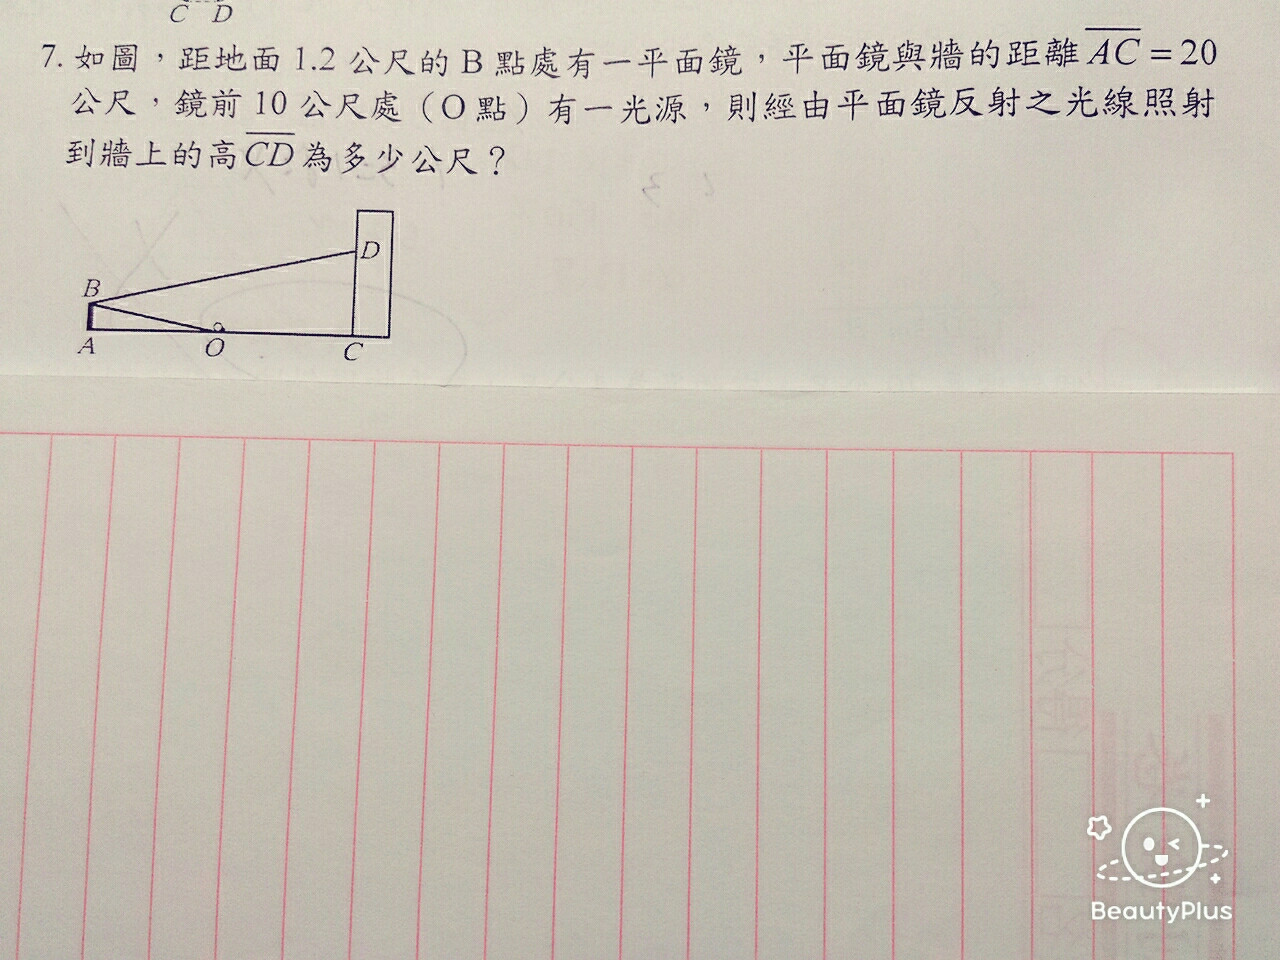 C D
7. 如圖，距地面 1.2 公尺的 B 點處有一平面鏡，平面鏡與牆的距離 AC = 20
公尺，鏡前 10 公尺處（O 點）有一光源，則經由平面鏡反射之光線照射
到牆上的高 CD 為多少公尺？
D
B
A O C
BeautyPlus